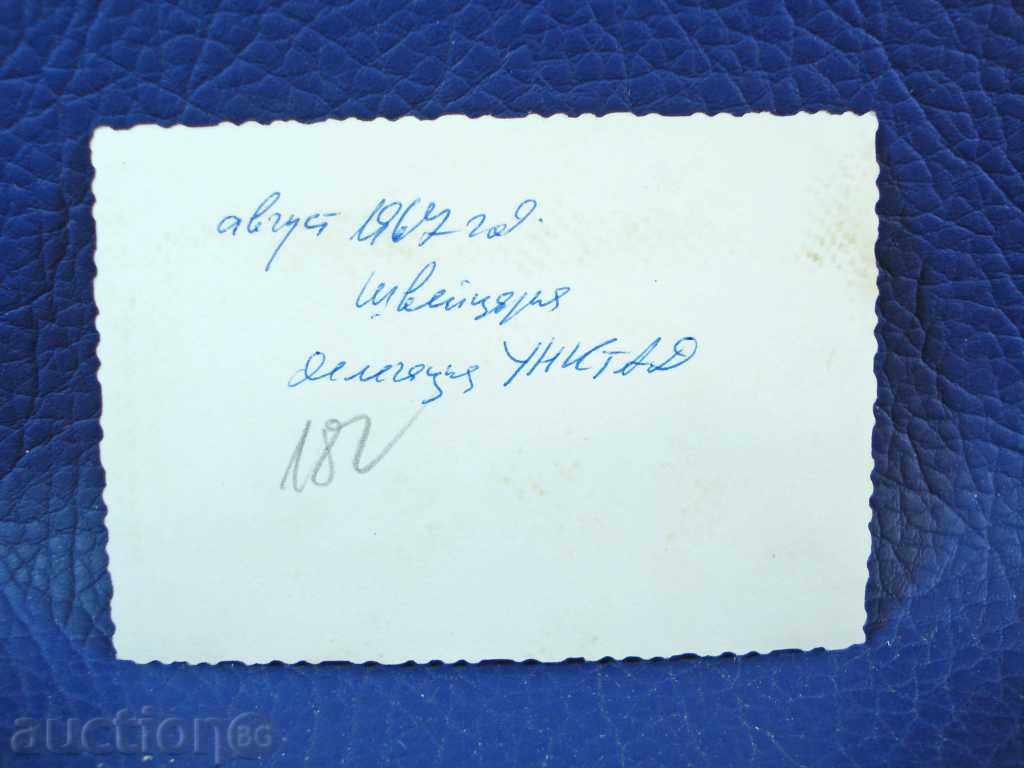 август 1967 год.
Швейцария
делегация УНКТАД
182
auction BG